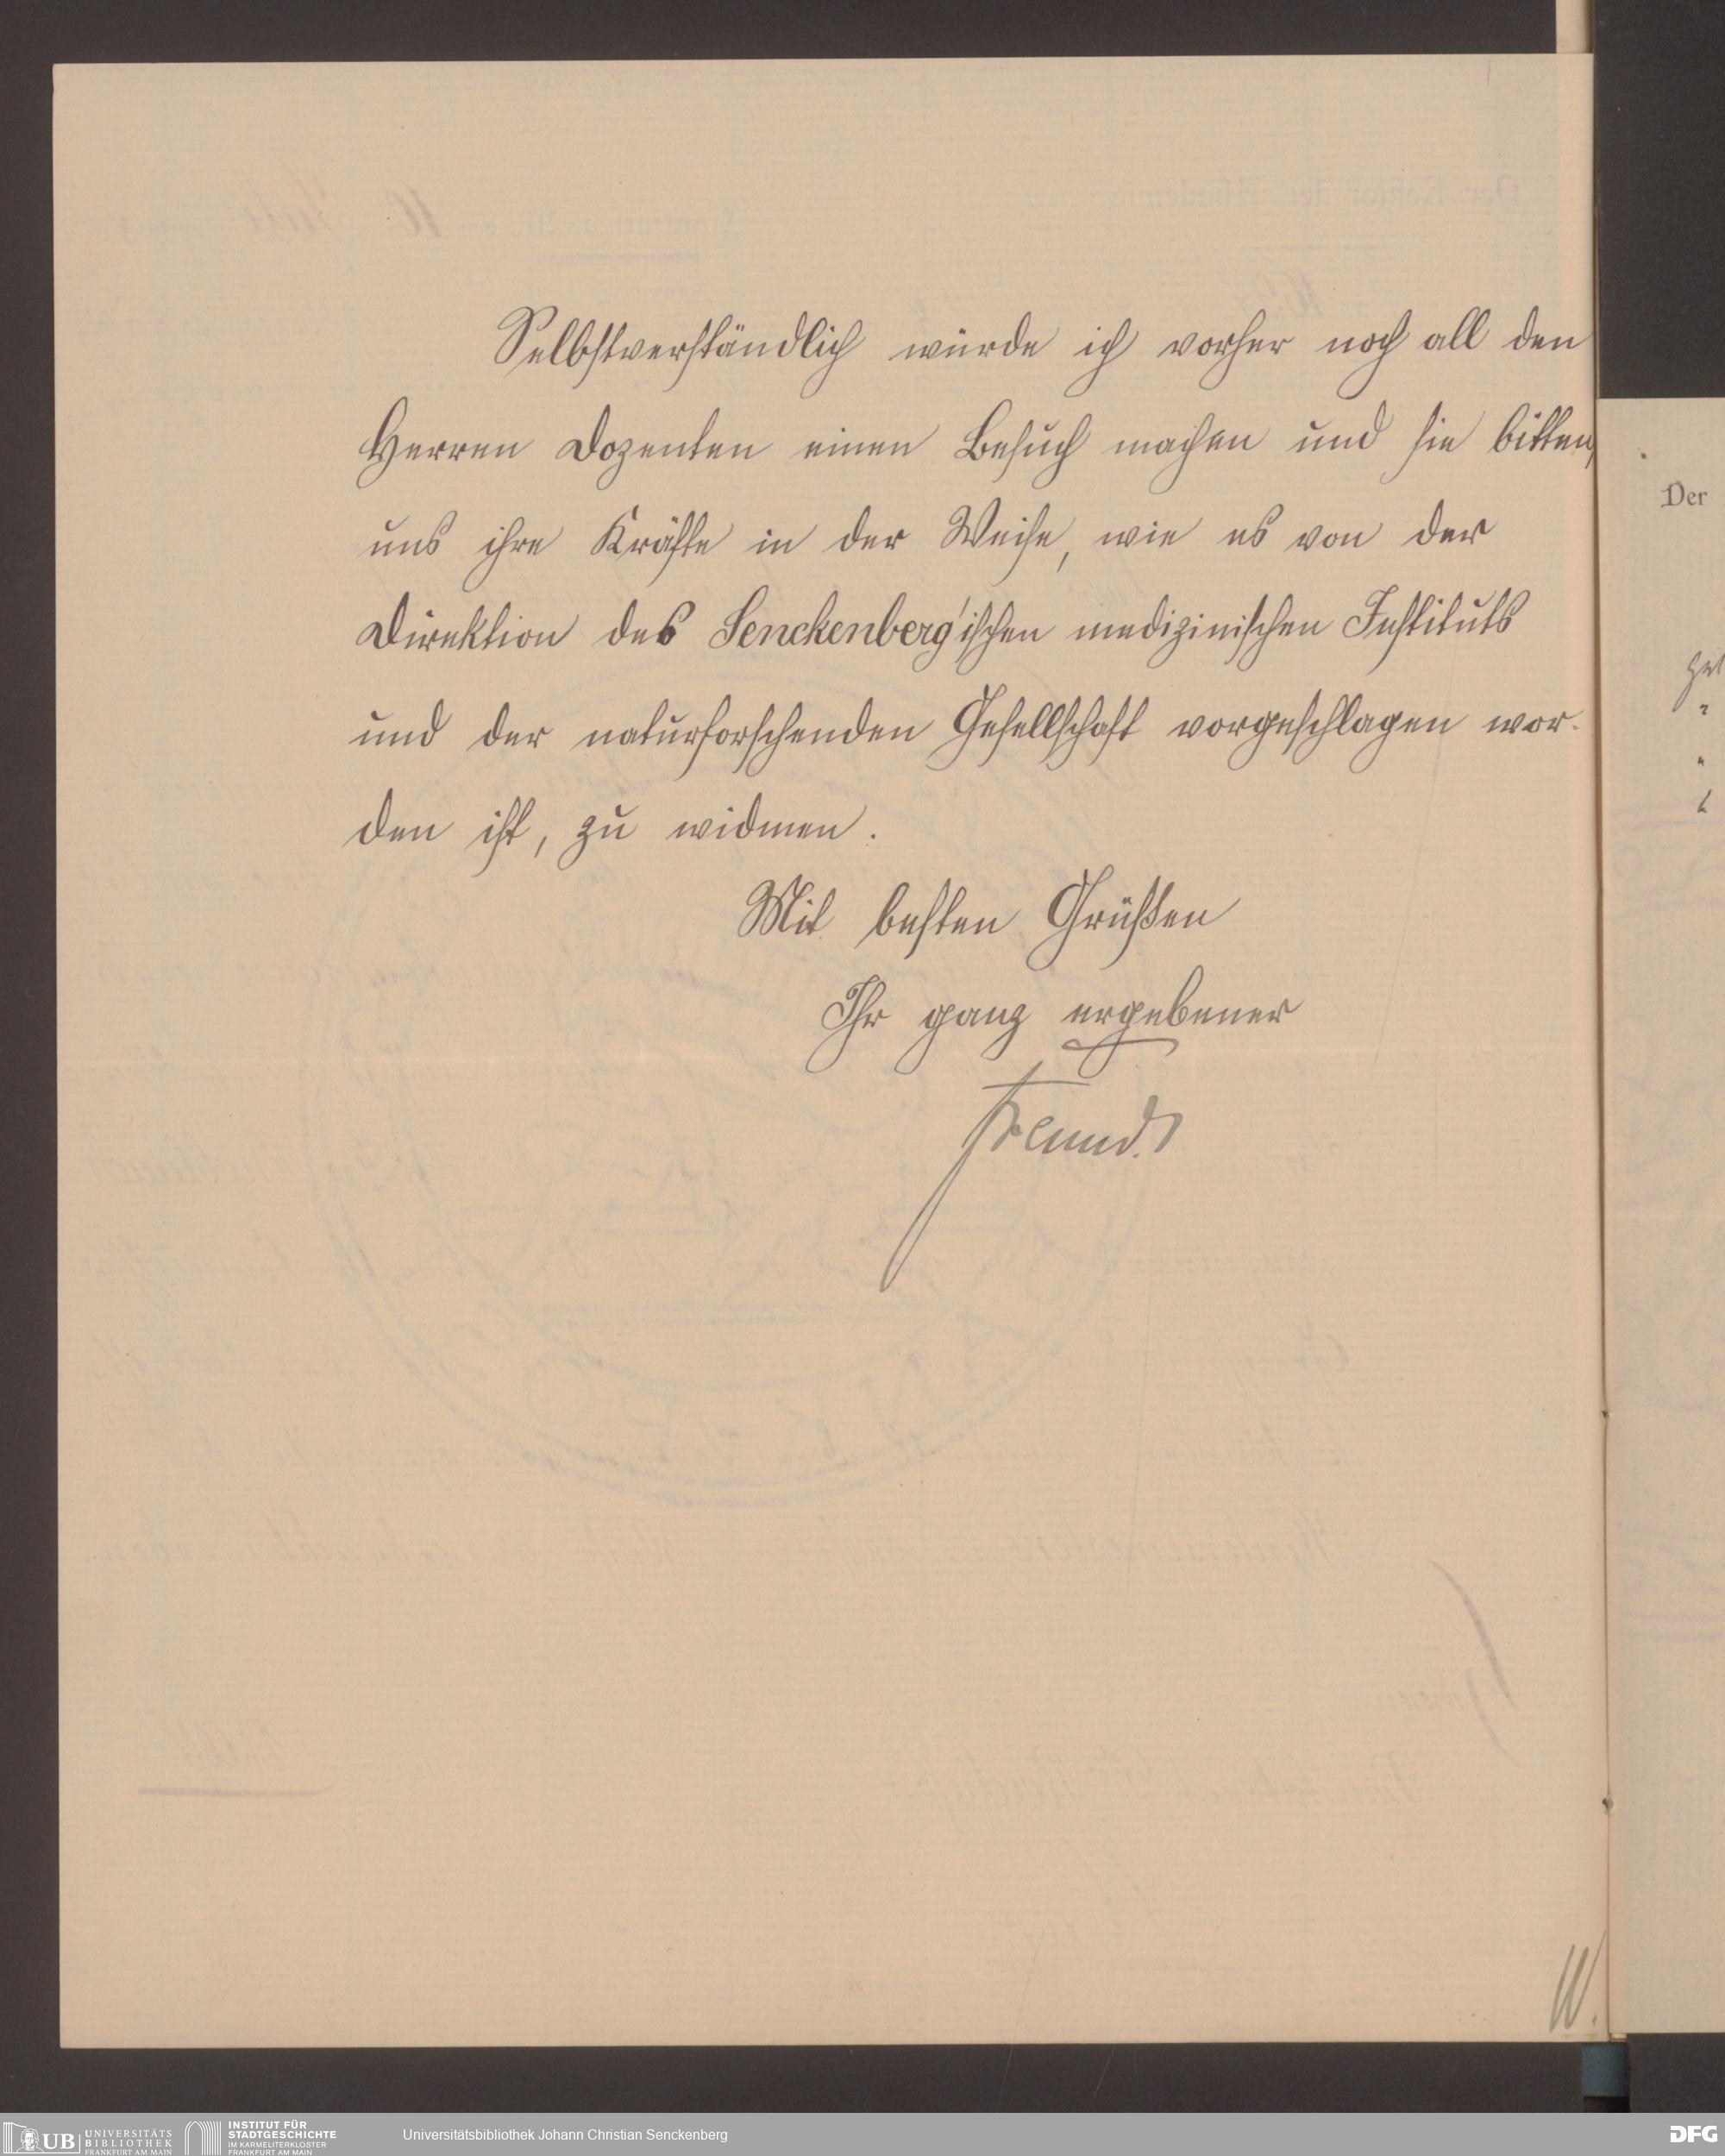 Selbstverständlich würde ich vorher noch all den
Herren Dozenten einen Besuch machen und sie bitten,
uns ihre Kräfte in der Weise, wie es von der
Direktion des Senckenberg'ischen medizinischen Instituts
und der naturforschenden Gesellschaft vorgeschlagen wor-
den ist, zu widmen.
Mit besten Grüßen
Ihr ganz ergebener
Freund.
W.
Der
UB
UNIVERSITÄTS
BIBLIOTHEK
FRANKFURT AM MAIN
INSTITUT FÜR
STADTGESCHICHTE
IM KARMELITERKLOSTER
FRANKFURT AM MAIN
Universitätsbibliothek Johann Christian Senckenberg
DFG